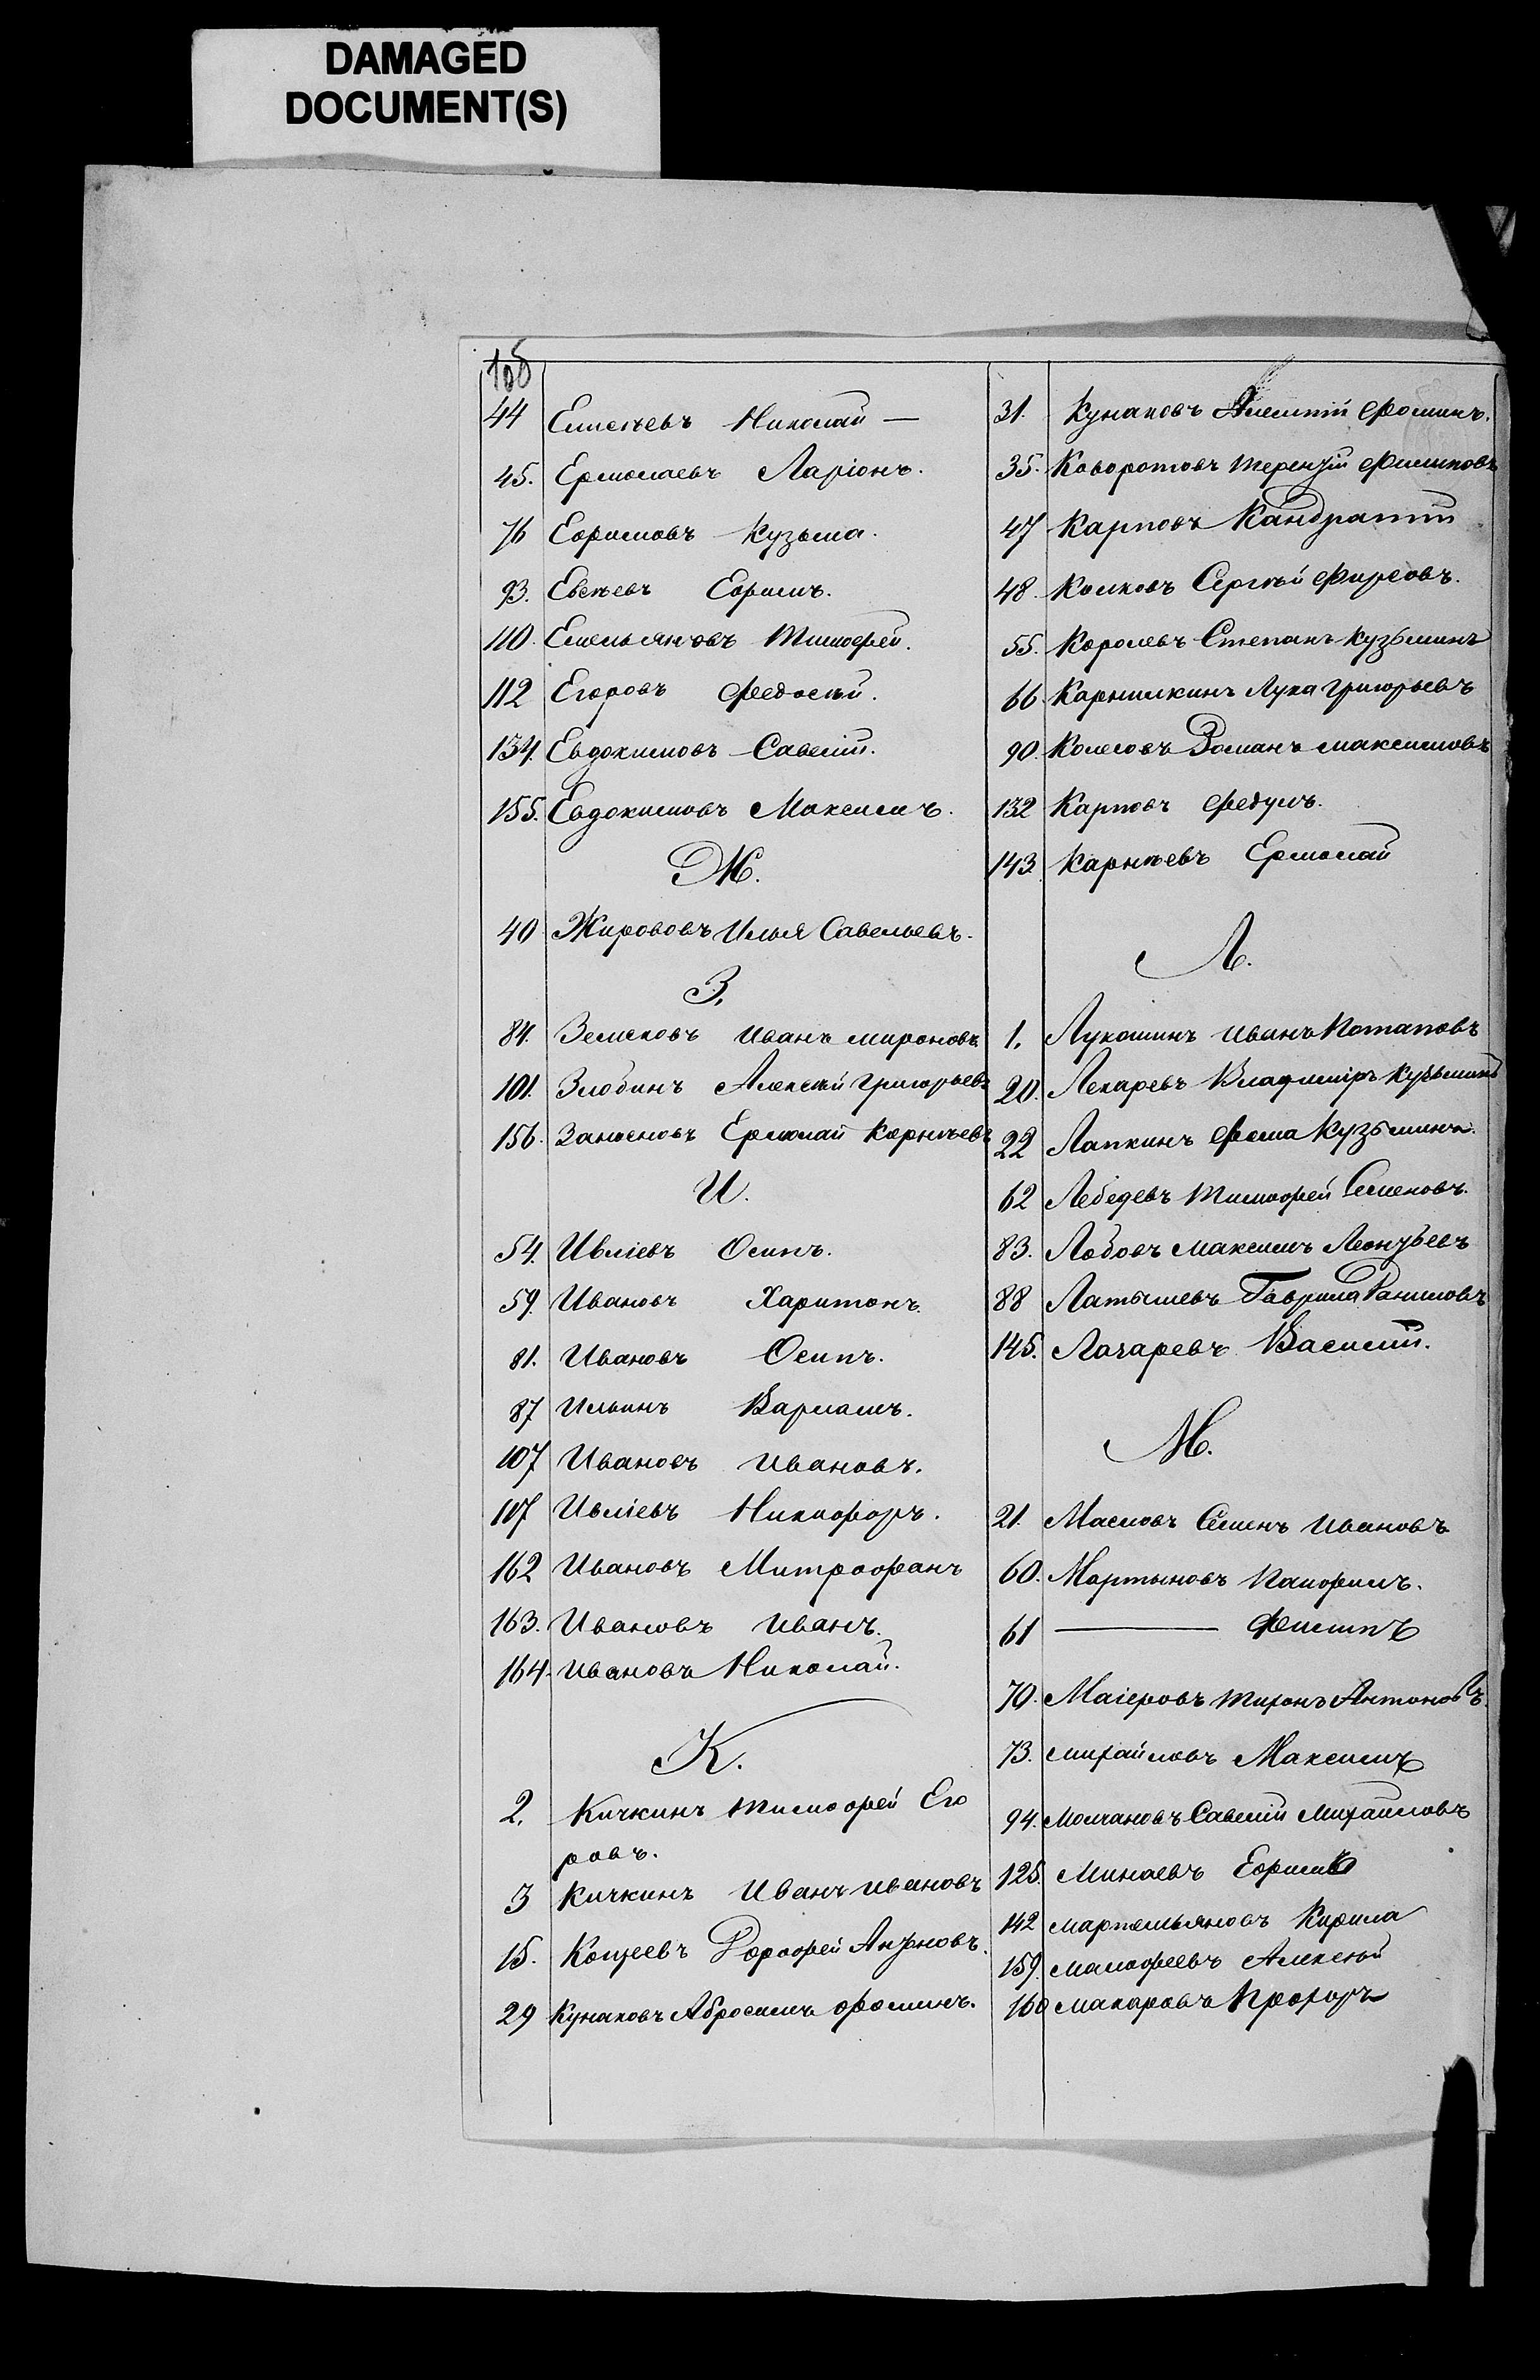 DAMAGED
DOCUMENT(S)
44 Елисеевъ Николай —
45. Ермолаевъ Ларіонъ.
76 Ефимовъ Кузьма.
93. Евсѣевъ Ефимъ.
110. Емельяновъ Тимофей.
112 Егоровъ Федосѣй.
134. Евдокимовъ Савелій.
155. Евдокимовъ Максимъ.
Ж.
40 Жирововъ Илья Савельевъ.
З.
84. Земсковъ Иванъ Мироновъ.
101. Злобинъ Алексѣй Григорьевъ
156. Ермолай Корнѣевъ
И.
54. Ивліевъ Осипъ.
59. Ивановъ Харитонъ.
81. Ивановъ Осипъ.
87 Ильинъ Варламъ.
107 Ивановъ Ивановъ.
117 Ивліевъ Никифоръ.
162 Ивановъ Митрофанъ
163. Ивановъ Иванъ.
164. Ивановъ Николай.
К.
2. Кичкинъ Тимофей Его
ровъ.
3 Кичкинъ Иванъ Ивановъ
15. Кощеевъ Дорофей
29 Кунаковъ Абросимъ Фоминъ.
31. Кунаковъ Фоминъ.
35. Каворотовъ Терентій Филиповъ
47 Карповъ Кандратій
48. Колковъ Сергѣй Фирсовъ.
55. Королевъ Степанъ Кузьминъ
66 Карнилкинъ Лука Григорьевъ
90. Колесовъ Романъ Максимовъ
132 Карповъ Федулъ.
143. Карнѣевъ Ермолай
Л.
1. Лукошинъ Иванъ Потаповъ
20. Лекаревъ Владиміръ Кузьминъ
22 Лапкинъ Фома Кузьминъ.
62 Лебедевъ Тимофей Семеновъ.
83. Лобовъ Максимъ Леонтьевъ
88 Латышевъ Гаврила Даниловъ
145. Лачаревъ Василій.
М.
21. Масловъ Семенъ Ивановъ
60. Мартыновъ Панфилъ.
61 ——— Филипъ
70. Маіеровъ Миронъ Антоновъ.
73. Михайловъ Максимъ
94. Молчановъ Савелій Михайловъ
125. Минаевъ Ефимъ
142 Мартемьяновъ Кирила
159. Малофеевъ Алексѣй
160 Макаровъ Прохоръ